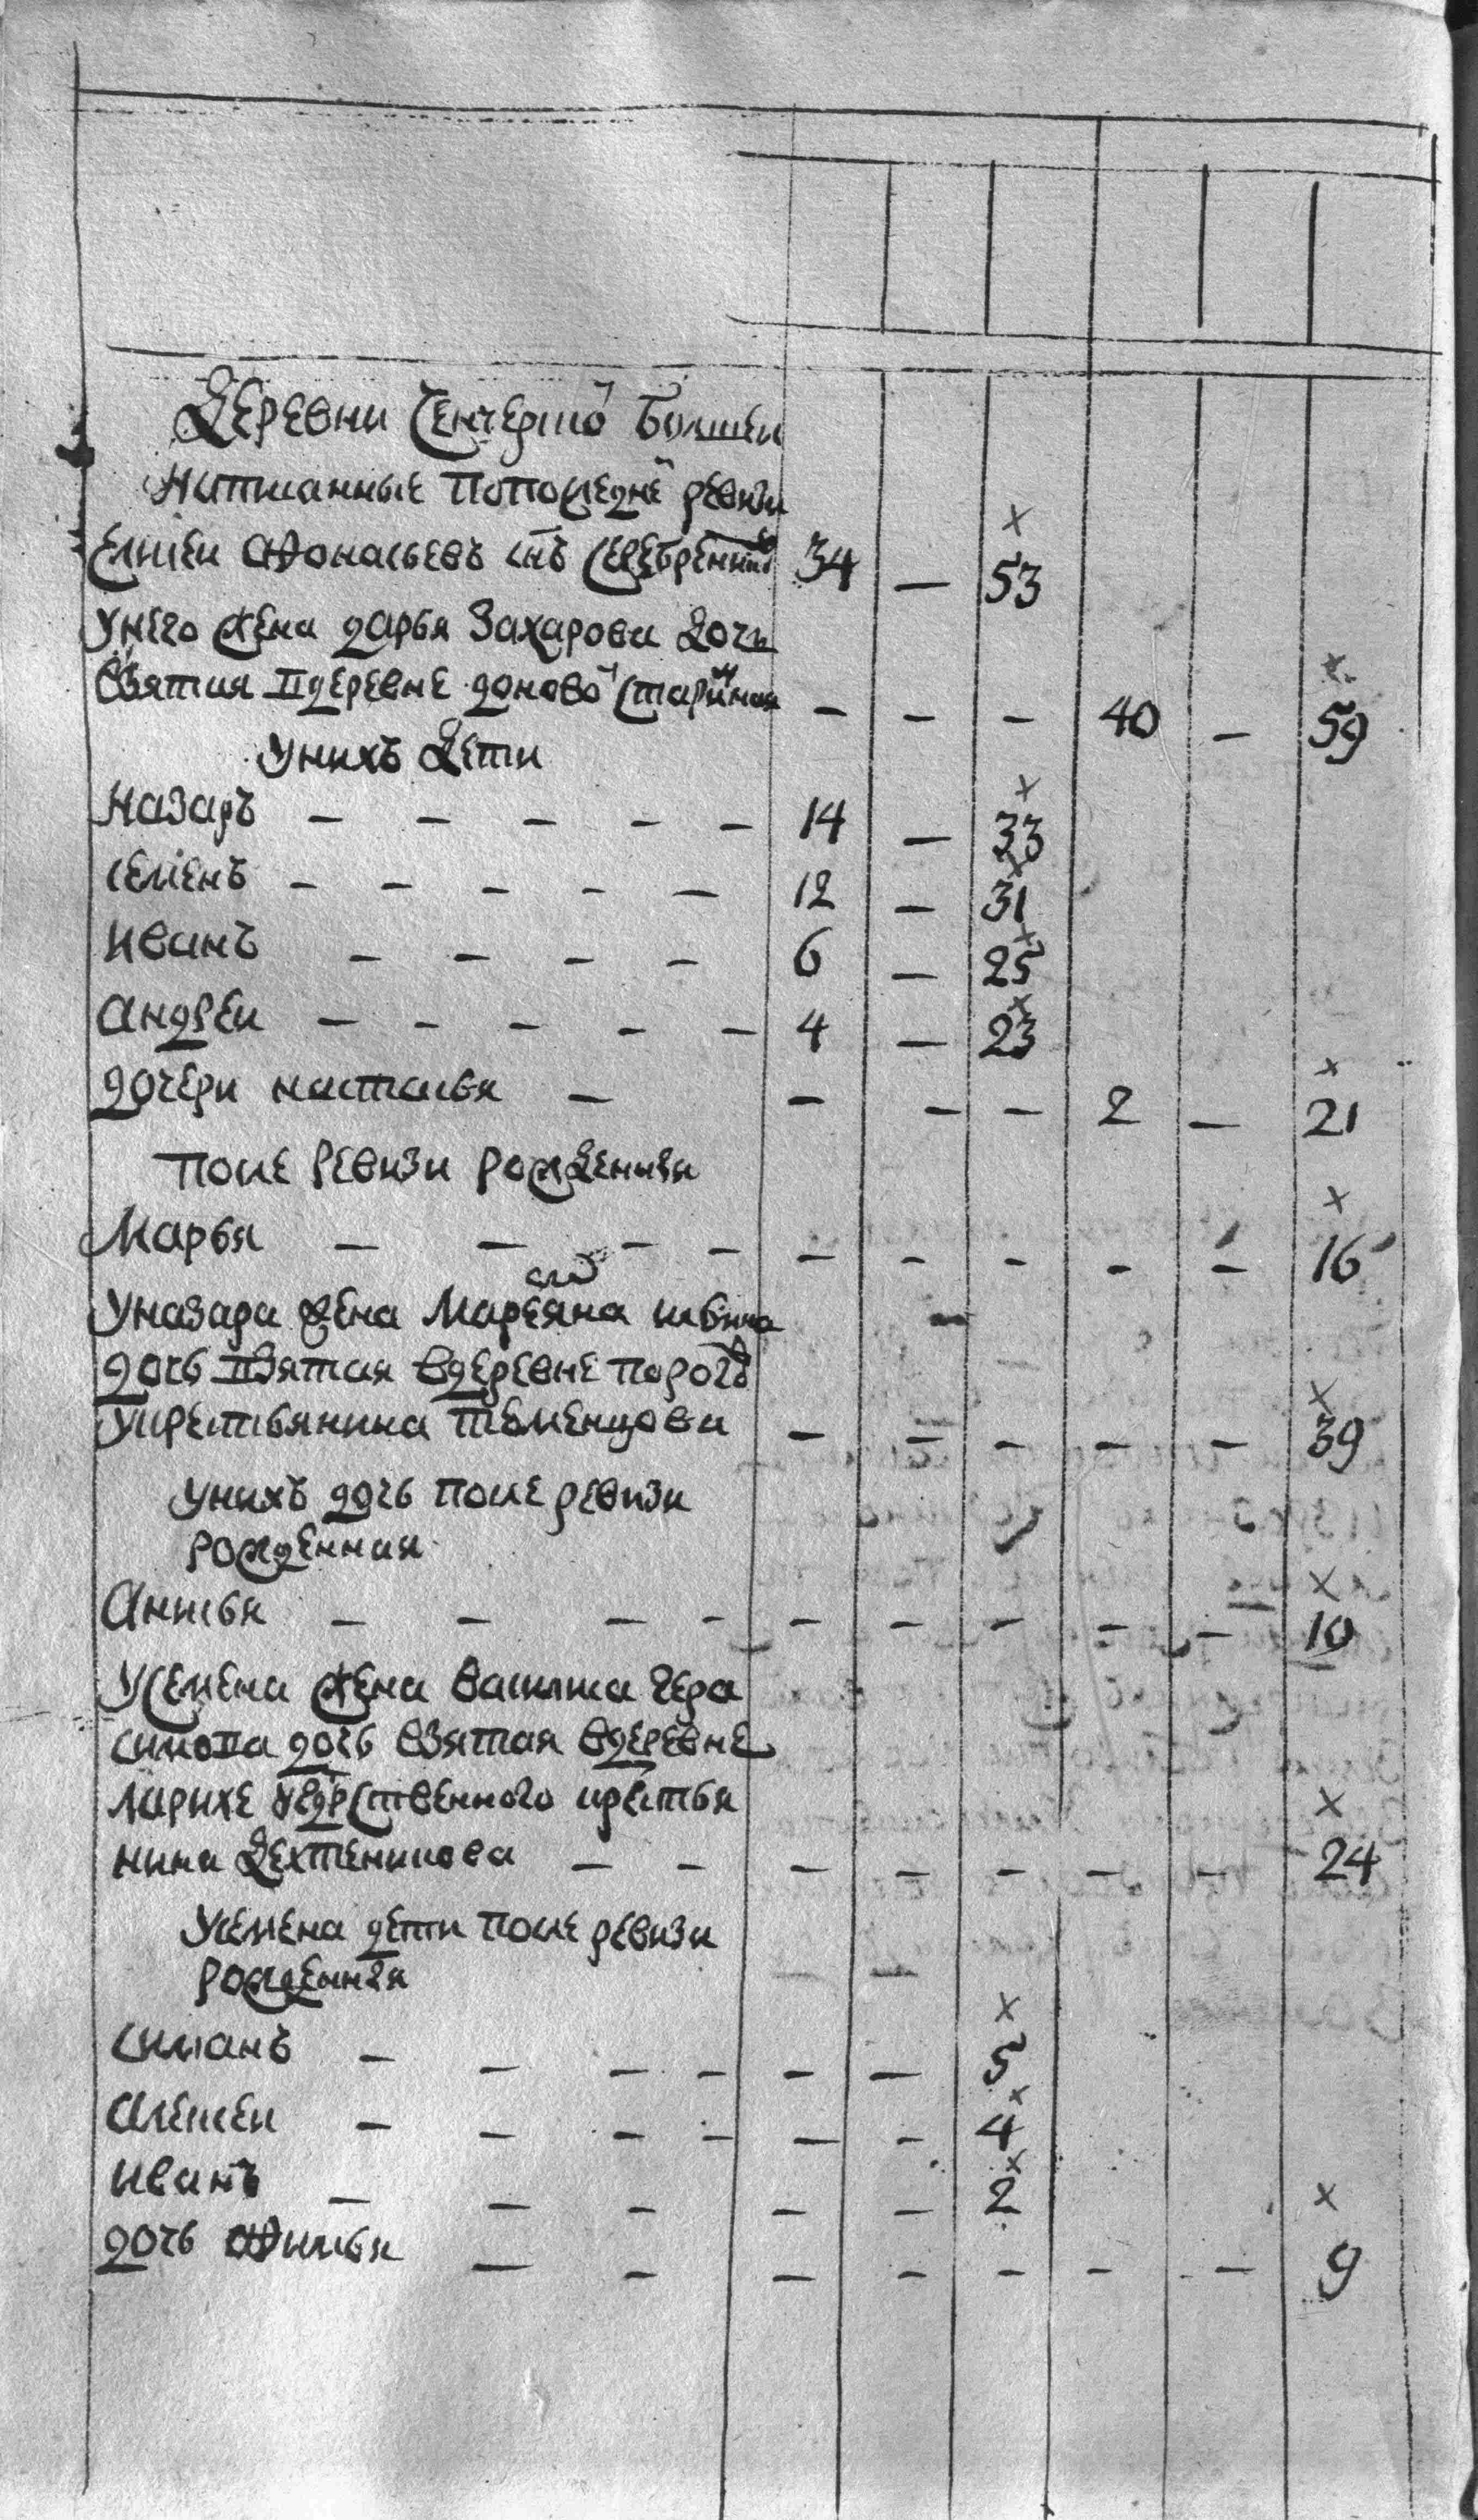 Деревни Сенчерской Большей
Написанные попоследне ревизи
Елисеи Афонасьевъ снъ Серебренниковъ 34 — 53
Унего жена дарья Захарова дочь
Взятия вдеревне доновой старинная — — — 40 — 59
Унихъ дети
Назаръ — — — — — 14 — 33
семенъ — — — — — 12 — 31
иванъ — — — — 6 — 25
андреи — — — — — 4 — 23
дочери насталья — — — — 2 — 21
после ревизи рожденныя
Марья — — — — — — — — — 16
Уназара жена Мареяна
дочь взятая вдеревне порогъ
укрестьянина теменцова — — — — — 39
унихъ дочь после ревизи
рожденная
Анисья — — — — — — — — — 10
Усемена жена василиса гера
симова дочь взятая вдеревне
ларихе крестья
нина дехтеникова — — — — — — — 24
Усемена дети после ревизи
рожденныя
симанъ — — — — — — 5
алексеи — — — — — — 4
иванъ — — — — — 2
дочь Афимья — — — — — — — 9